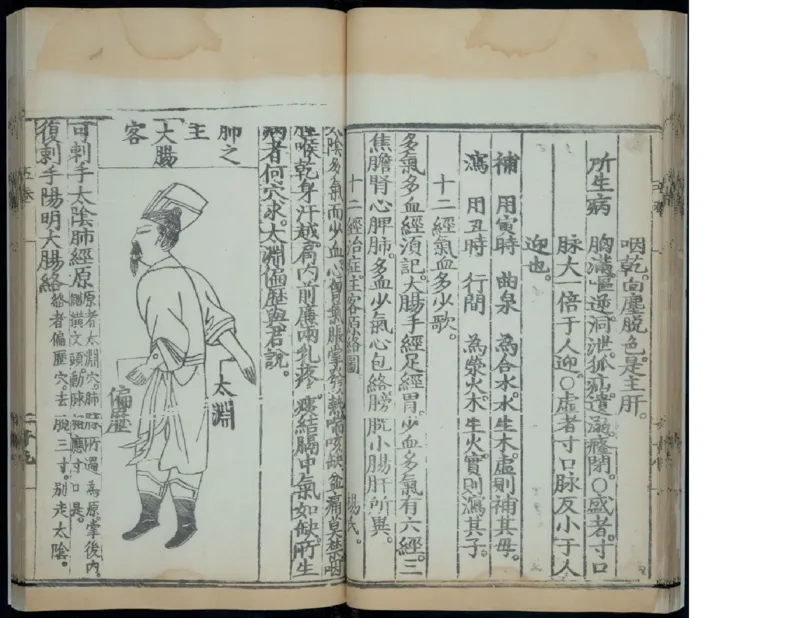 咽乾。面塵脫色。是主肝。
所生病 胸滿嘔逆。洞泄。狐疝。遺溺。癃閉。○盛者。寸口
脉大一倍于人迎。○虛者寸口脉反小于人
迎也。
補 用寅時 曲泉 為合水。水生木。虛則補其母。
瀉 用丑時 行間 為滎火。木生火。實則瀉其子。
十二經氣血多少歌。
多氣多血經須記。大腸手經足經胃。少血多氣有六經。三
焦膽腎心脾肺。多血少氣心包絡。膀胱小腸肝所異。
十二經治症主客原絡圖 楊氏。
太陰多氣而少血。心胸氣脹掌發熱。喘咳缺盆痛莫禁。咽
腫喉乾身汗越。肩內前廉兩乳疼。痰結膈中氣如缺。所生
病者何穴求。太淵偏歷與君說。
肺之
主
大腸
客
太淵
偏歷
可刺手太陰肺經原
原者太淵穴。肺脉所過為原。掌後內
側橫紋頭。動脉相應寸口是。
復刺手陽明大腸絡
絡者偏歷穴。去腕三寸。別走太陰。